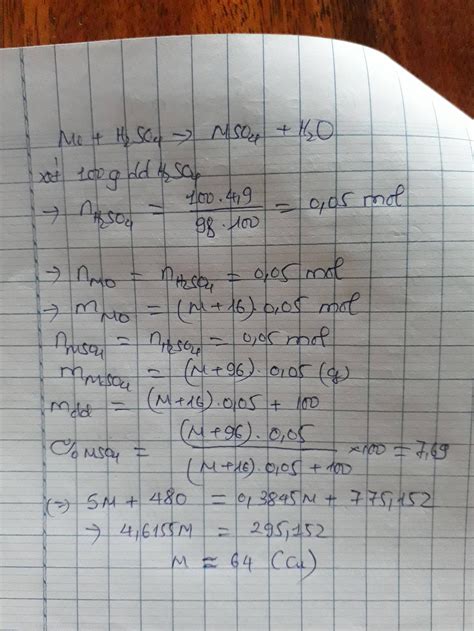 MO + H₂SO₄ → MSO₄ + H₂O
xét 100g dd H₂SO₄
→ nH₂SO₄ = 100.4,9 / 98.100 = 0,05 mol
→ nMO = nH₂SO₄ = 0,05 mol
→ mMO = (M+16).0,05 mol
nMSO₄ = nH₂SO₄ = 0,05 mol
mMSO₄ = (M+96).0,05 (g)
mdd = (M+16).0,05 + 100
C% MSO₄ = (M+96).0,05 / (M+16).0,05+100 ×100 = 7,69
(→) 5M + 480 = 0,3845M + 775,152
→ 4,6155M = 295,152
M = 64 (Cu)